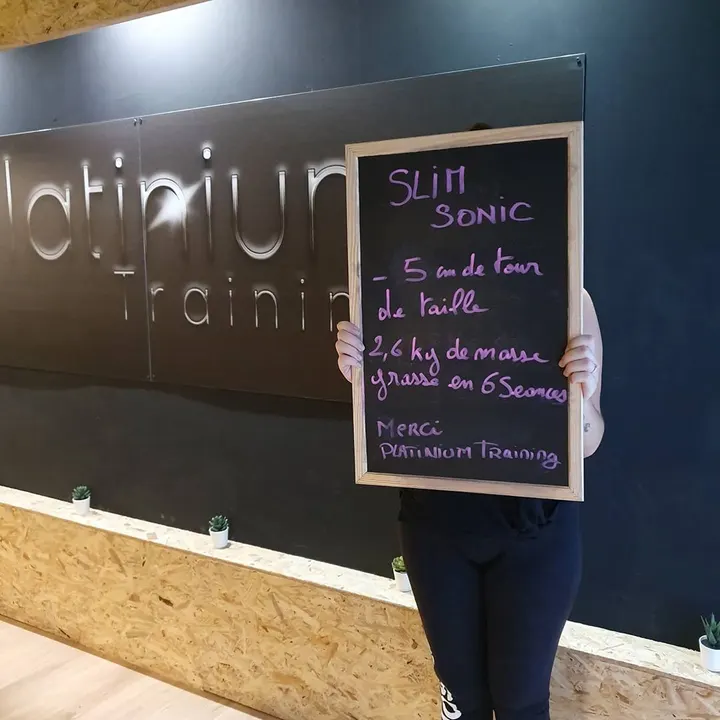 latinium
Training
SLIM
SONIC
- 5 cm de tour
de taille
2,6 kg de masse
grasse en 6 Seances
MERCI
PLATINIUM TRaining